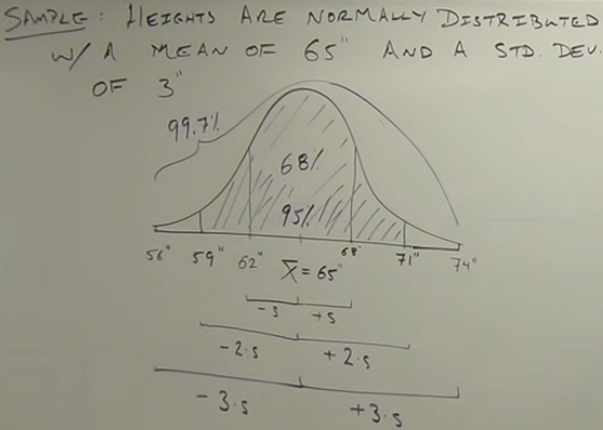 SAMPLE: HEIGHTS ARE NORMALLY DISTRIBUTED
W/ A MEAN OF 65" AND A STD. DEV.
OF 3"
99.7%
68%
95%
56" 59" 62" x̄ = 65" 68" 71" 74"
-s +s
-2·s +2·s
-3·s +3·s